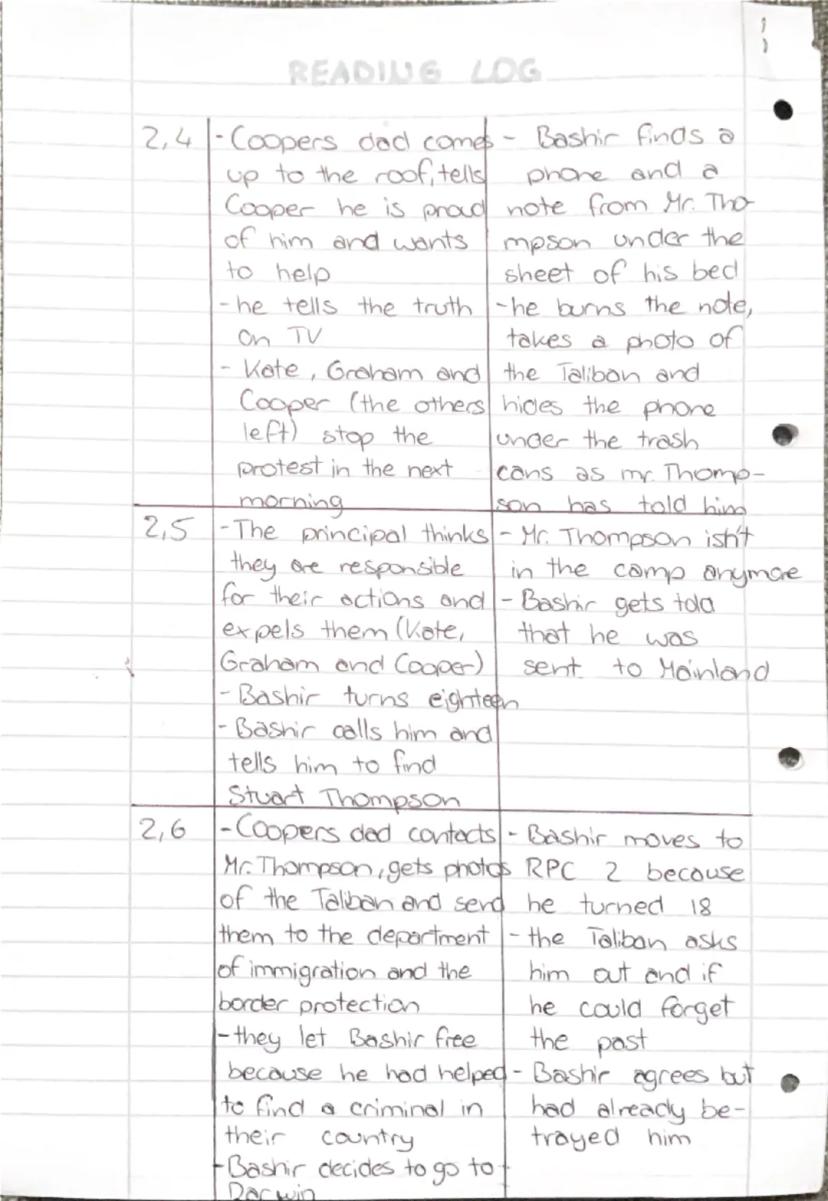 READING LOG
2,4
- Coopers dad comes
up to the roof, tells
Cooper he is proud
of him and wants
to help
- he tells the truth
on TV
- Kate, Graham and
Cooper (the others
left) stop the
protest in the next
morning
- Bashir finds a
phone and a
note from Mr. Tho-
mpson under the
sheet of his bed
- he burns the note,
takes a photo of
the Taliban and
hides the phone
under the trash
cans as mr. Thomp-
son has told him
2,5
- The principal thinks
they are responsible
for their actions and
expels them (Kate,
Graham and Cooper)
- Bashir turns eighteen
- Bashir calls him and
tells him to find
Stuart Thompson
- Mr. Thompson isn't
in the camp anymore
- Bashir gets told
that he was
sent to Mainland
2,6
- Coopers dad contacts
Mr. Thompson, gets photos
of the Taliban and send
them to the department
of immigration and the
border protection
- they let Bashir free
because he had helped
to find a criminal in
their country
- Bashir decides to go to
Darwin
- Bashir moves to
RPC 2 because
he turned 18
- the Taliban asks
him out and if
he could forget
the past
- Bashir agrees but
had already be-
trayed him